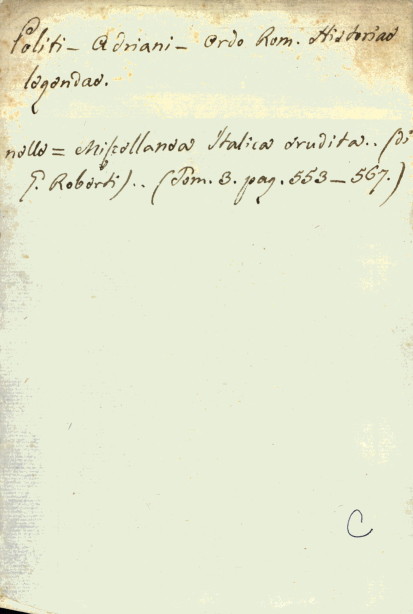 Politi - Adriani - Ordo Rom. Historiae
legendae.
nelle = Miscellanea Italica erudita.. (di
G. Roberti).. (Tom. 3. pag. 553 - 567.)
C